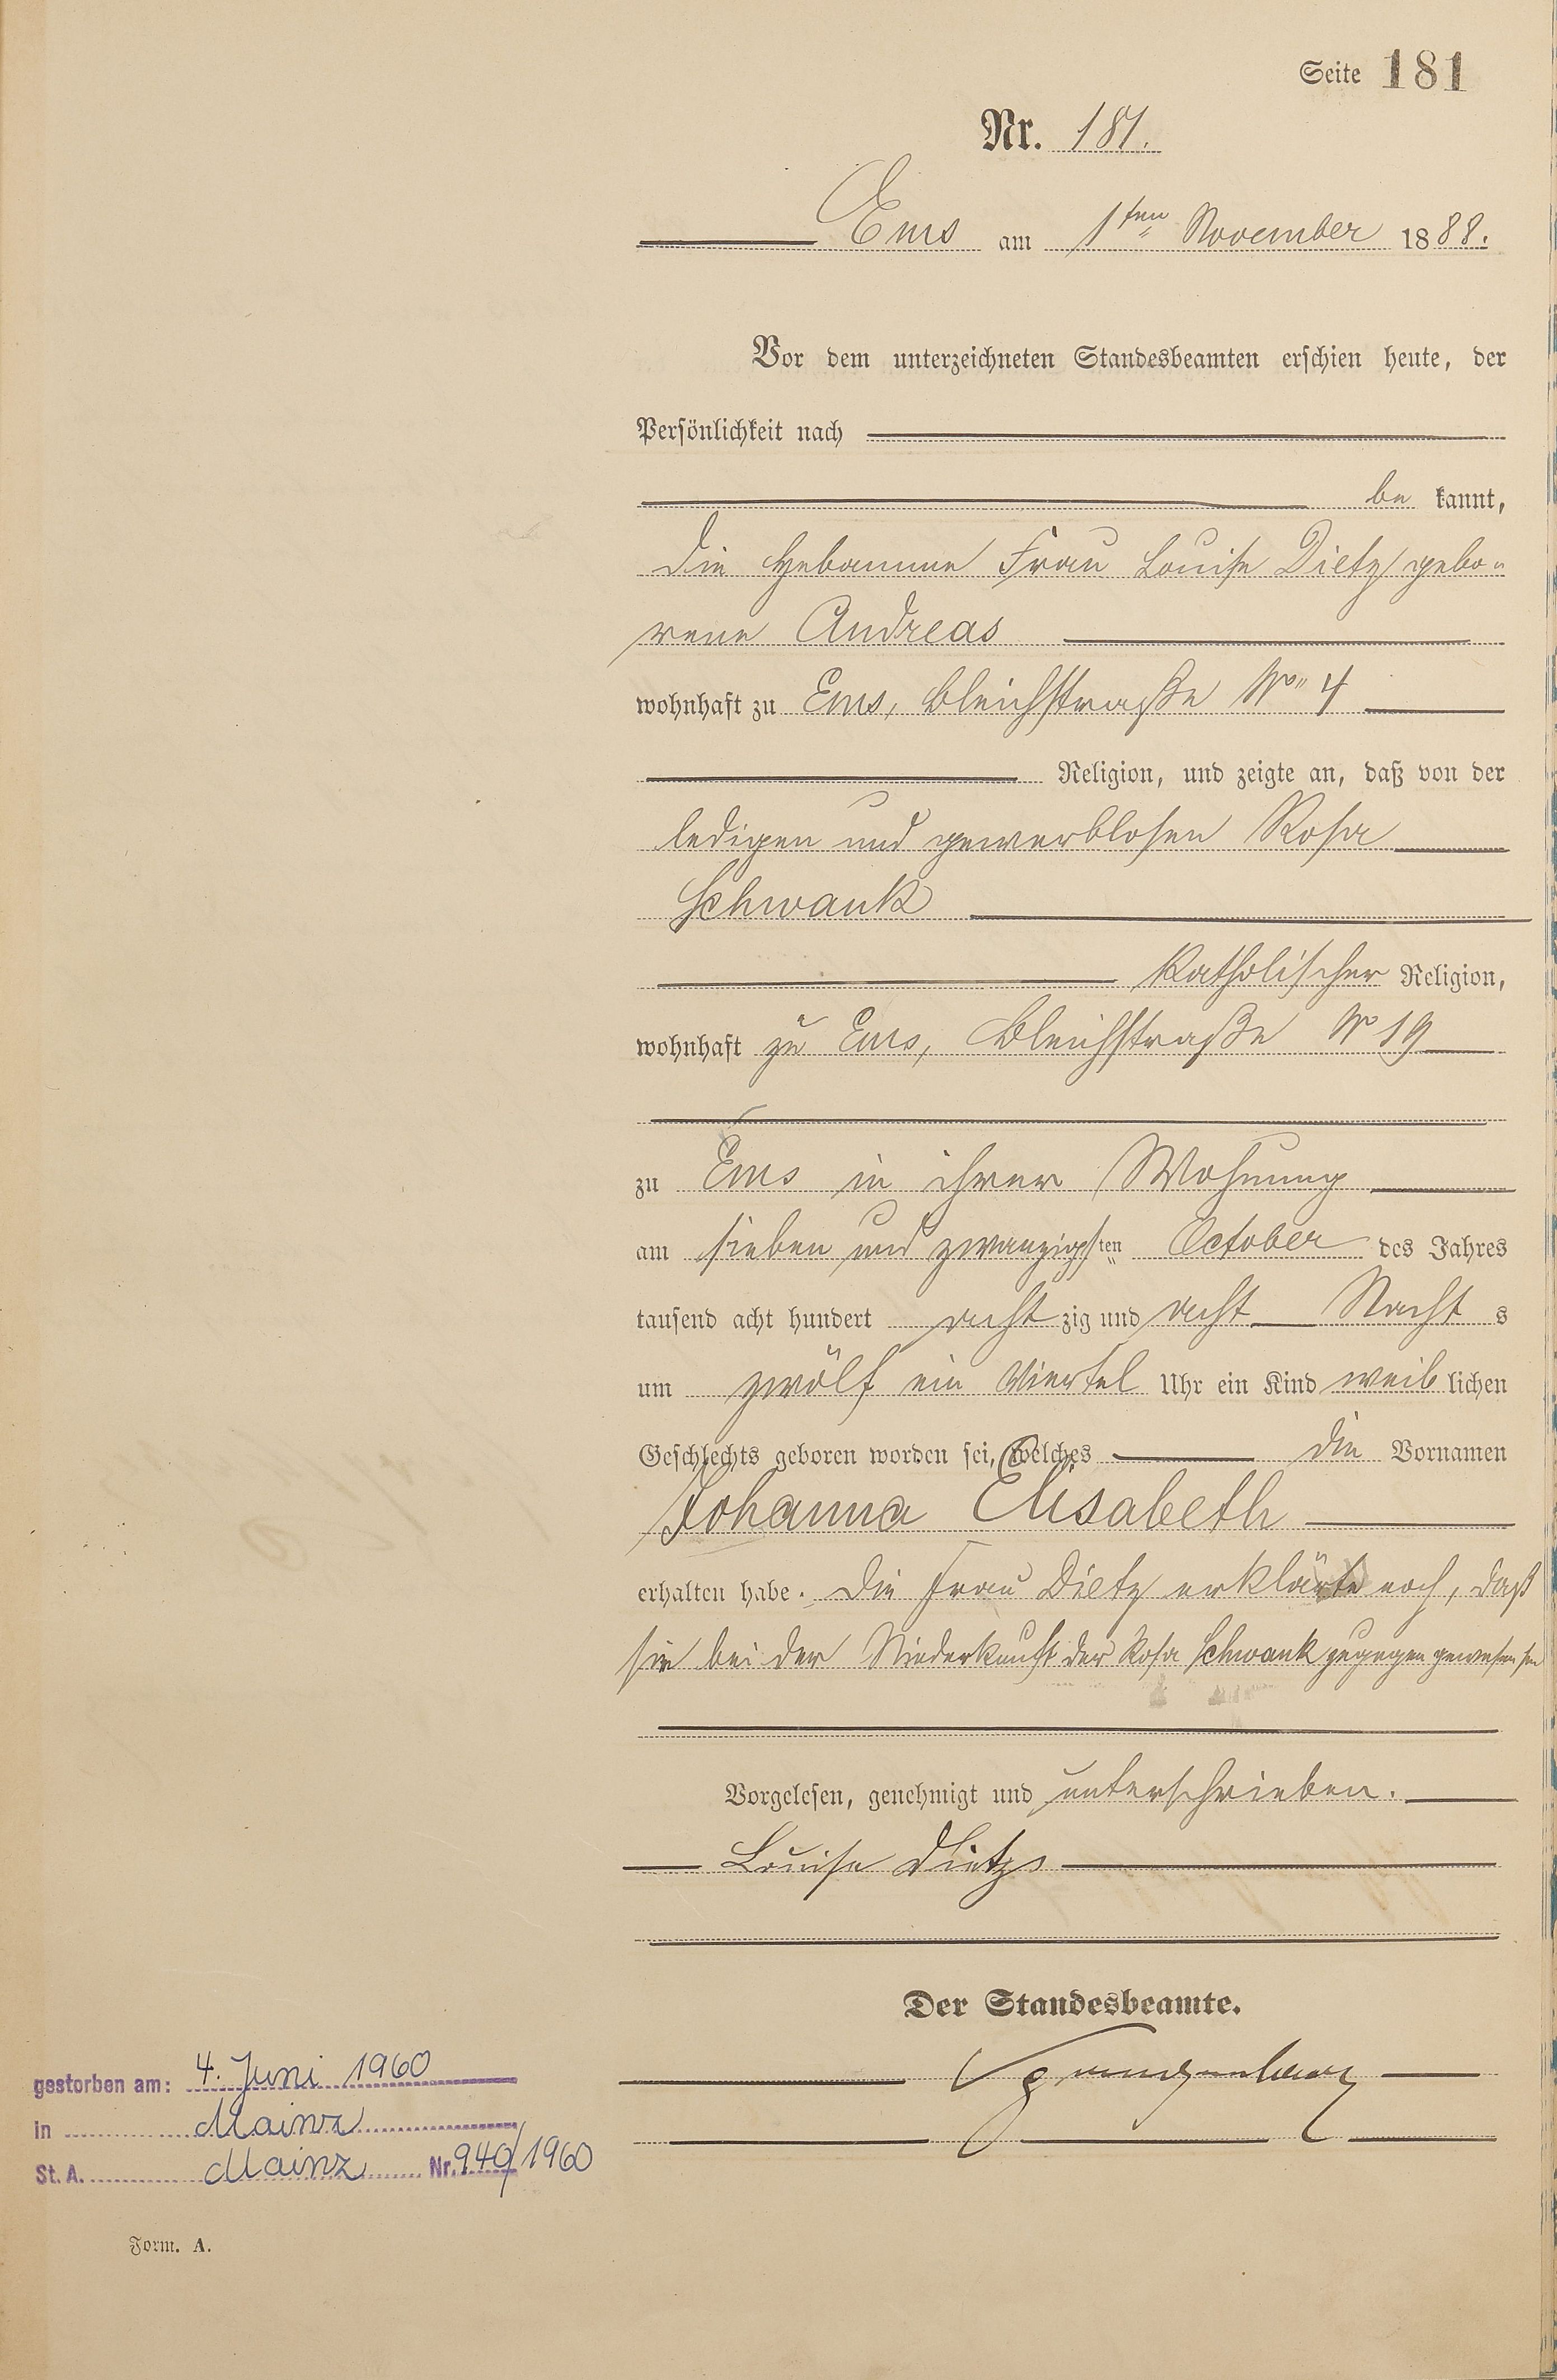 Seite 181
Nr. 181.
Ems am 1ten November 1888.
Vor dem unterzeichneten Standesbeamten erschien heute, der
Persönlichkeit nach
be kannt,
die Hebamme Frau Louise Dietz gebo-
rene Andreas
wohnhaft zu Ems, Bleichstraße No 4
Religion, und zeigte an, daß von der
ledigen und gewerblosen Rosa
Schwank
katholischer Religion,
wohnhaft zu Ems, Bleichstraße No 19
zu Ems in ihrer Wohnung
am sieben und zwanzigsten October des Jahres
tausend acht hundert acht zig und acht Nacht s
um zwölf ein Viertel Uhr ein Kind weib lichen
Geschlechts geboren worden sei, welches die Vornamen
Johanna Elisabeth
erhalten habe. Die Frau Dietz erklärte noch, daß
sie bei der Niederkunft der Rosa Schwank zugegen gewesen sei
Vorgelesen, genehmigt und unterschrieben.
Louise Dietz
Der Standesbeamte.
gestorben am: 4. Juni 1960
in Mainz
St. A. Mainz Nr. 940/1960
Form. A.